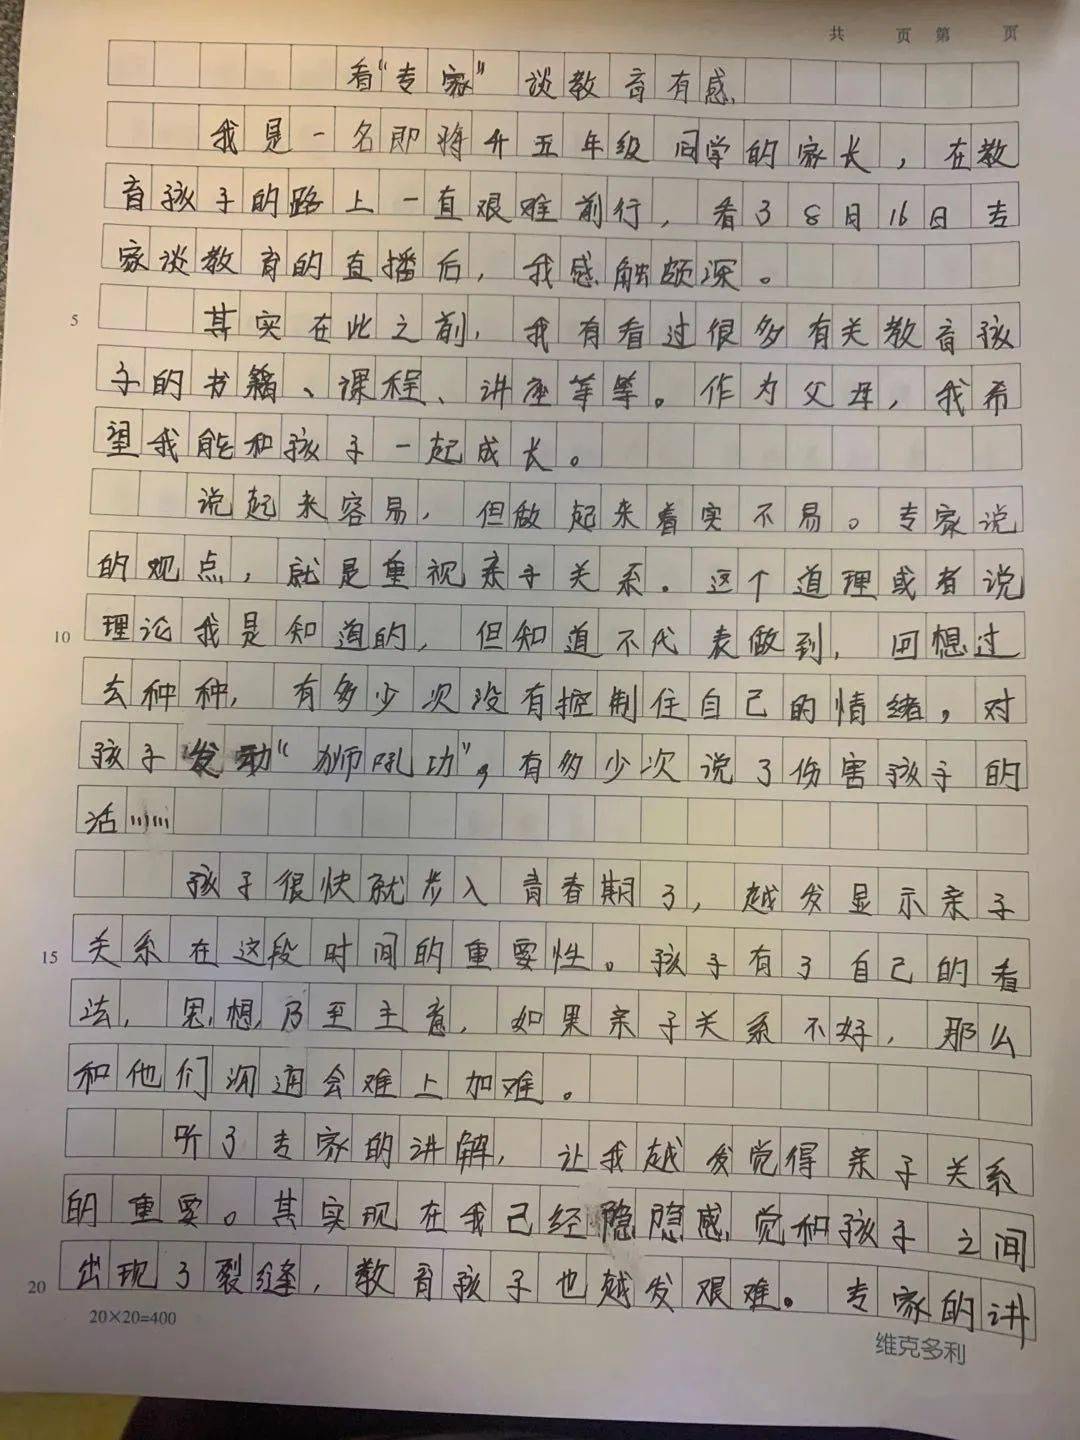 共 页 第 页
看“专家”谈教育有感
我是一名即将升五年级同学的家长，在教
育孩子的路上一直艰难前行，看了8月16日专
家谈教育的直播后，我感触颇深。
5 其实在此之前，我有看过很多有关教育孩
子的书籍、课程、讲座等等。作为父母，我希
望我能和孩子一起成长。
说起来容易，但做起来着实不易。专家说
的观点，就是重视亲子关系。这个道理或者说
10 理论我是知道的，但知道不代表做到，回想过
去种种，有多少次没有控制住自己的情绪，对
孩子发动“狮吼功”，有多少次说了伤害孩子的
话……
孩子很快就步入青春期了，越发显示亲子
15 关系在这段时间的重要性。孩子有了自己的看
法，思想乃至主意，如果亲子关系不好，那么
和他们沟通会难上加难。
听了专家的讲解，让我越发觉得亲子关系
的重要。其实现在我已经隐隐感觉和孩子之间
20 出现了裂缝，教育孩子也越发艰难。专家的讲
20×20=400
维克多利